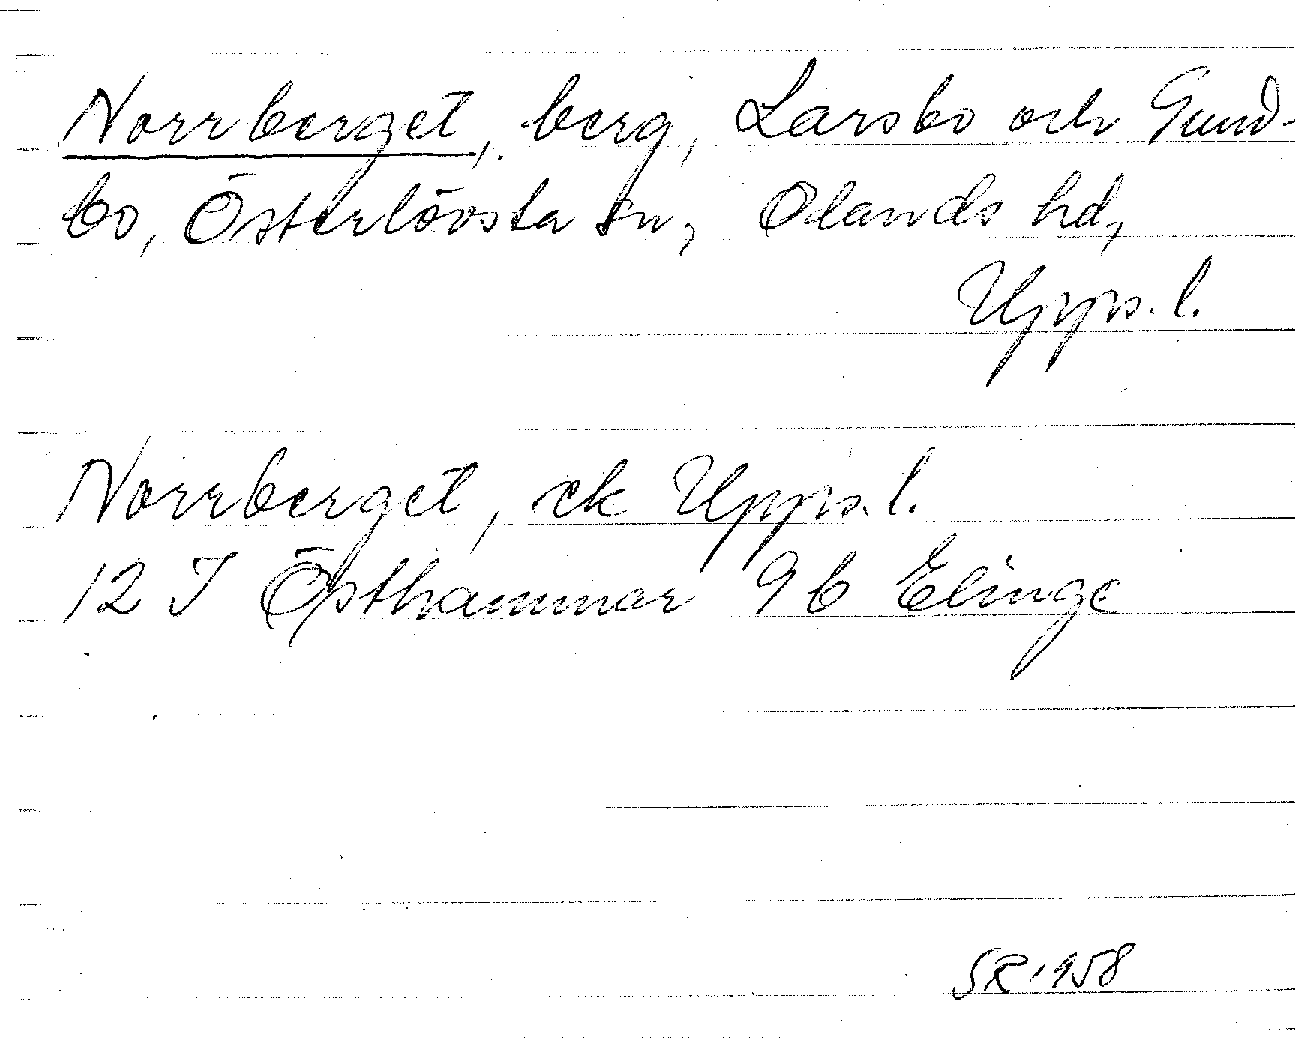 Norrberget, berg, Larsbo och Gund-
bo, Österlövsta sn, Olands hd,
Upps. l.
Norrberget, ek Upps. l.
12 I Östhammar 9b Elinge
SR 1958